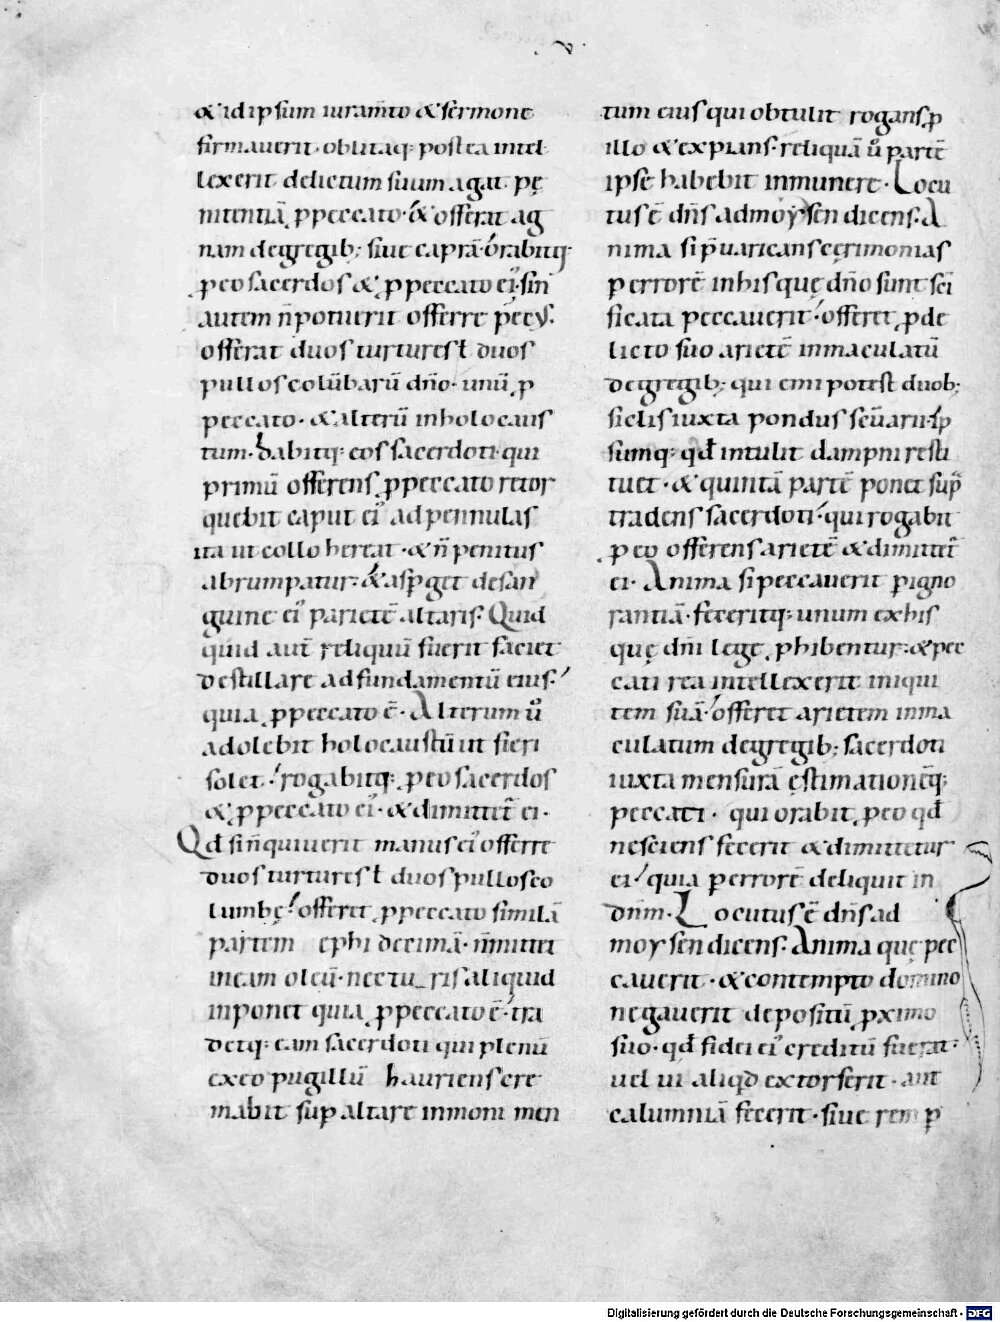 & id ipsum iuram̄to & sermone
firmauerit· oblitaq; postea intel
lexerit delictum suum agat pę
nitentiā ꝓ peccato· & offerat ag
nam de gregib; siue caprā· orabitq;
ꝓ eo sacerdos & ꝓ peccato ei᾿· sin
autem n̄ potuerit offerre pecꝰ·
offerat duos turtures ł duos
pullos colūbarū dn̄o· unū ꝓ
peccato· & alterū in holocaus
tum· Dabitq; eos sacerdoti· qui
primū offerens ꝓ peccato retor
quebit caput ei᾿ ad pennulas
ita ut collo hereat· & n̄ penitus
abrumpatur· & asp̄get de san
guine ei᾿ parietē altaris· Quid
quid aut̄ reliquū fuerit faciet
destillare ad fundamentū eius·
quia ꝓ peccato ē· Alterum ū
adolebit holocaustū ut fieri
solet· rogabitq; ꝓ eo sacerdos
& ꝓ peccato ei᾿· & dimittet᷑ ei·
Qđ si n̄ quiuerit manus ei᾿ offerre
duos turtures ł duos pullos co
lumbę· offeret ꝓ peccato similā
partem ephi decimā· n̄ mittet
in eam oleū· nec tu ris aliquid
inponet quia ꝓ peccato ē· tra
detq; eam sacerdoti qui plenū
ex eo pugillū hauriens cre
mabit sup altare in moni men
tum eius qui obtulit rogans ꝓ
illo & expians· reliquā ū partē
ipse habebit in munere· Locu
tus ē dn̄s ad moysen dicens· A
nima si p̄uaricans cęrimonias
ꝑ errorē in his quę dn̄o sunt sc̄i
ficata peccauerit· offeret ꝓ de
licto suo arietē inmaculatū
de gregib; qui emi potest duob;
siclis iuxta pondus sc̄uarii· ip
sumq; qđ intulit dampni resti
tuet· & quintā partē ponet sup̄
tradens sacerdoti· qui rogabit
ꝓ eo offerens arietē & dimittet᷑
ei· Anima si peccauerit ꝑ igno
rantiā· feceritq; unum ex his
quę dn̄i lege ꝓhibentur· & pec
cati rea intellexerit iniqui
tem suā· offeret arietem inma
culatum de gregib; sacerdoti
iuxta mensurā ęstimationēq;
peccati· qui orabit ꝓ eo qđ
nesciens fecerit & dimittetur
ei· quia ꝑ errorē deliquit in
dn̄m· Locutus ē dn̄s ad
moysen dicens· Anima quę pec
cauerit· & contempto domino
negauerit depositū ꝓximo
suo· qđ fidei ei᾿ creditū fuerat·
uel ui aliqđ extorserit· aut
calumniā fecerit· siue rem ꝑ
Digitalisierung gefördert durch die Deutsche Forschungsgemeinschaft - DFG